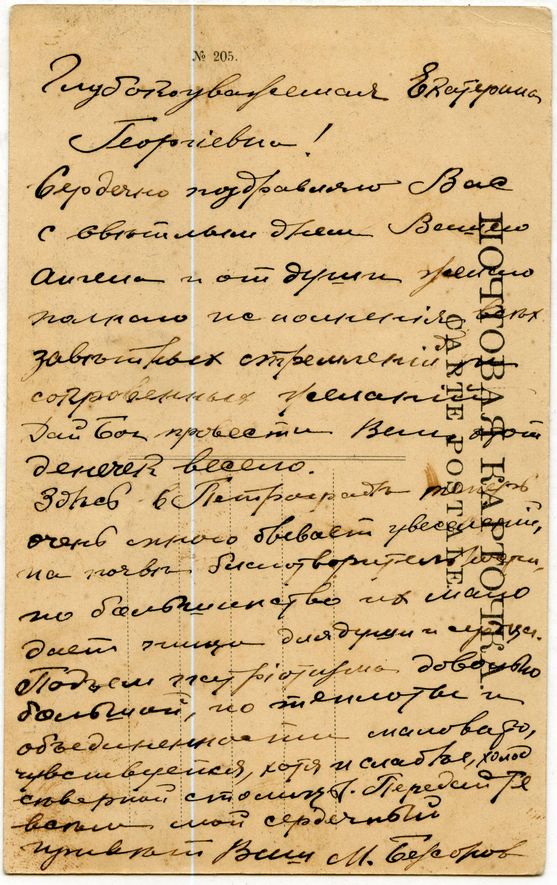 № 205.
Глубокоуважаемая Екатерина
Георгіевна!
Сердечно поздравляю Вас
с свѣтлым днем Вашего
Ангела и от души желаю
полнаго исполненія
завѣтных стремленій и
сокровенных желаній
Дай Бог провести Вам этот
денечек весело.
Здѣсь в Петроградѣ теперь
очень много бывает увеселеній,
на почвѣ благотворительности,
но большинство их мало
дает пищи для души и сердца.
Подъем патріотизма довольно
большой, но теплоты и
объединенности маловато,
чувствуется, хотя и слабѣе, холод
сѣверной столицы. Передайте
всѣм мой сердечный
привѣт Ваш М.
ПОЧТОВАЯ КАРТОЧКА.
CARTE POSTALE